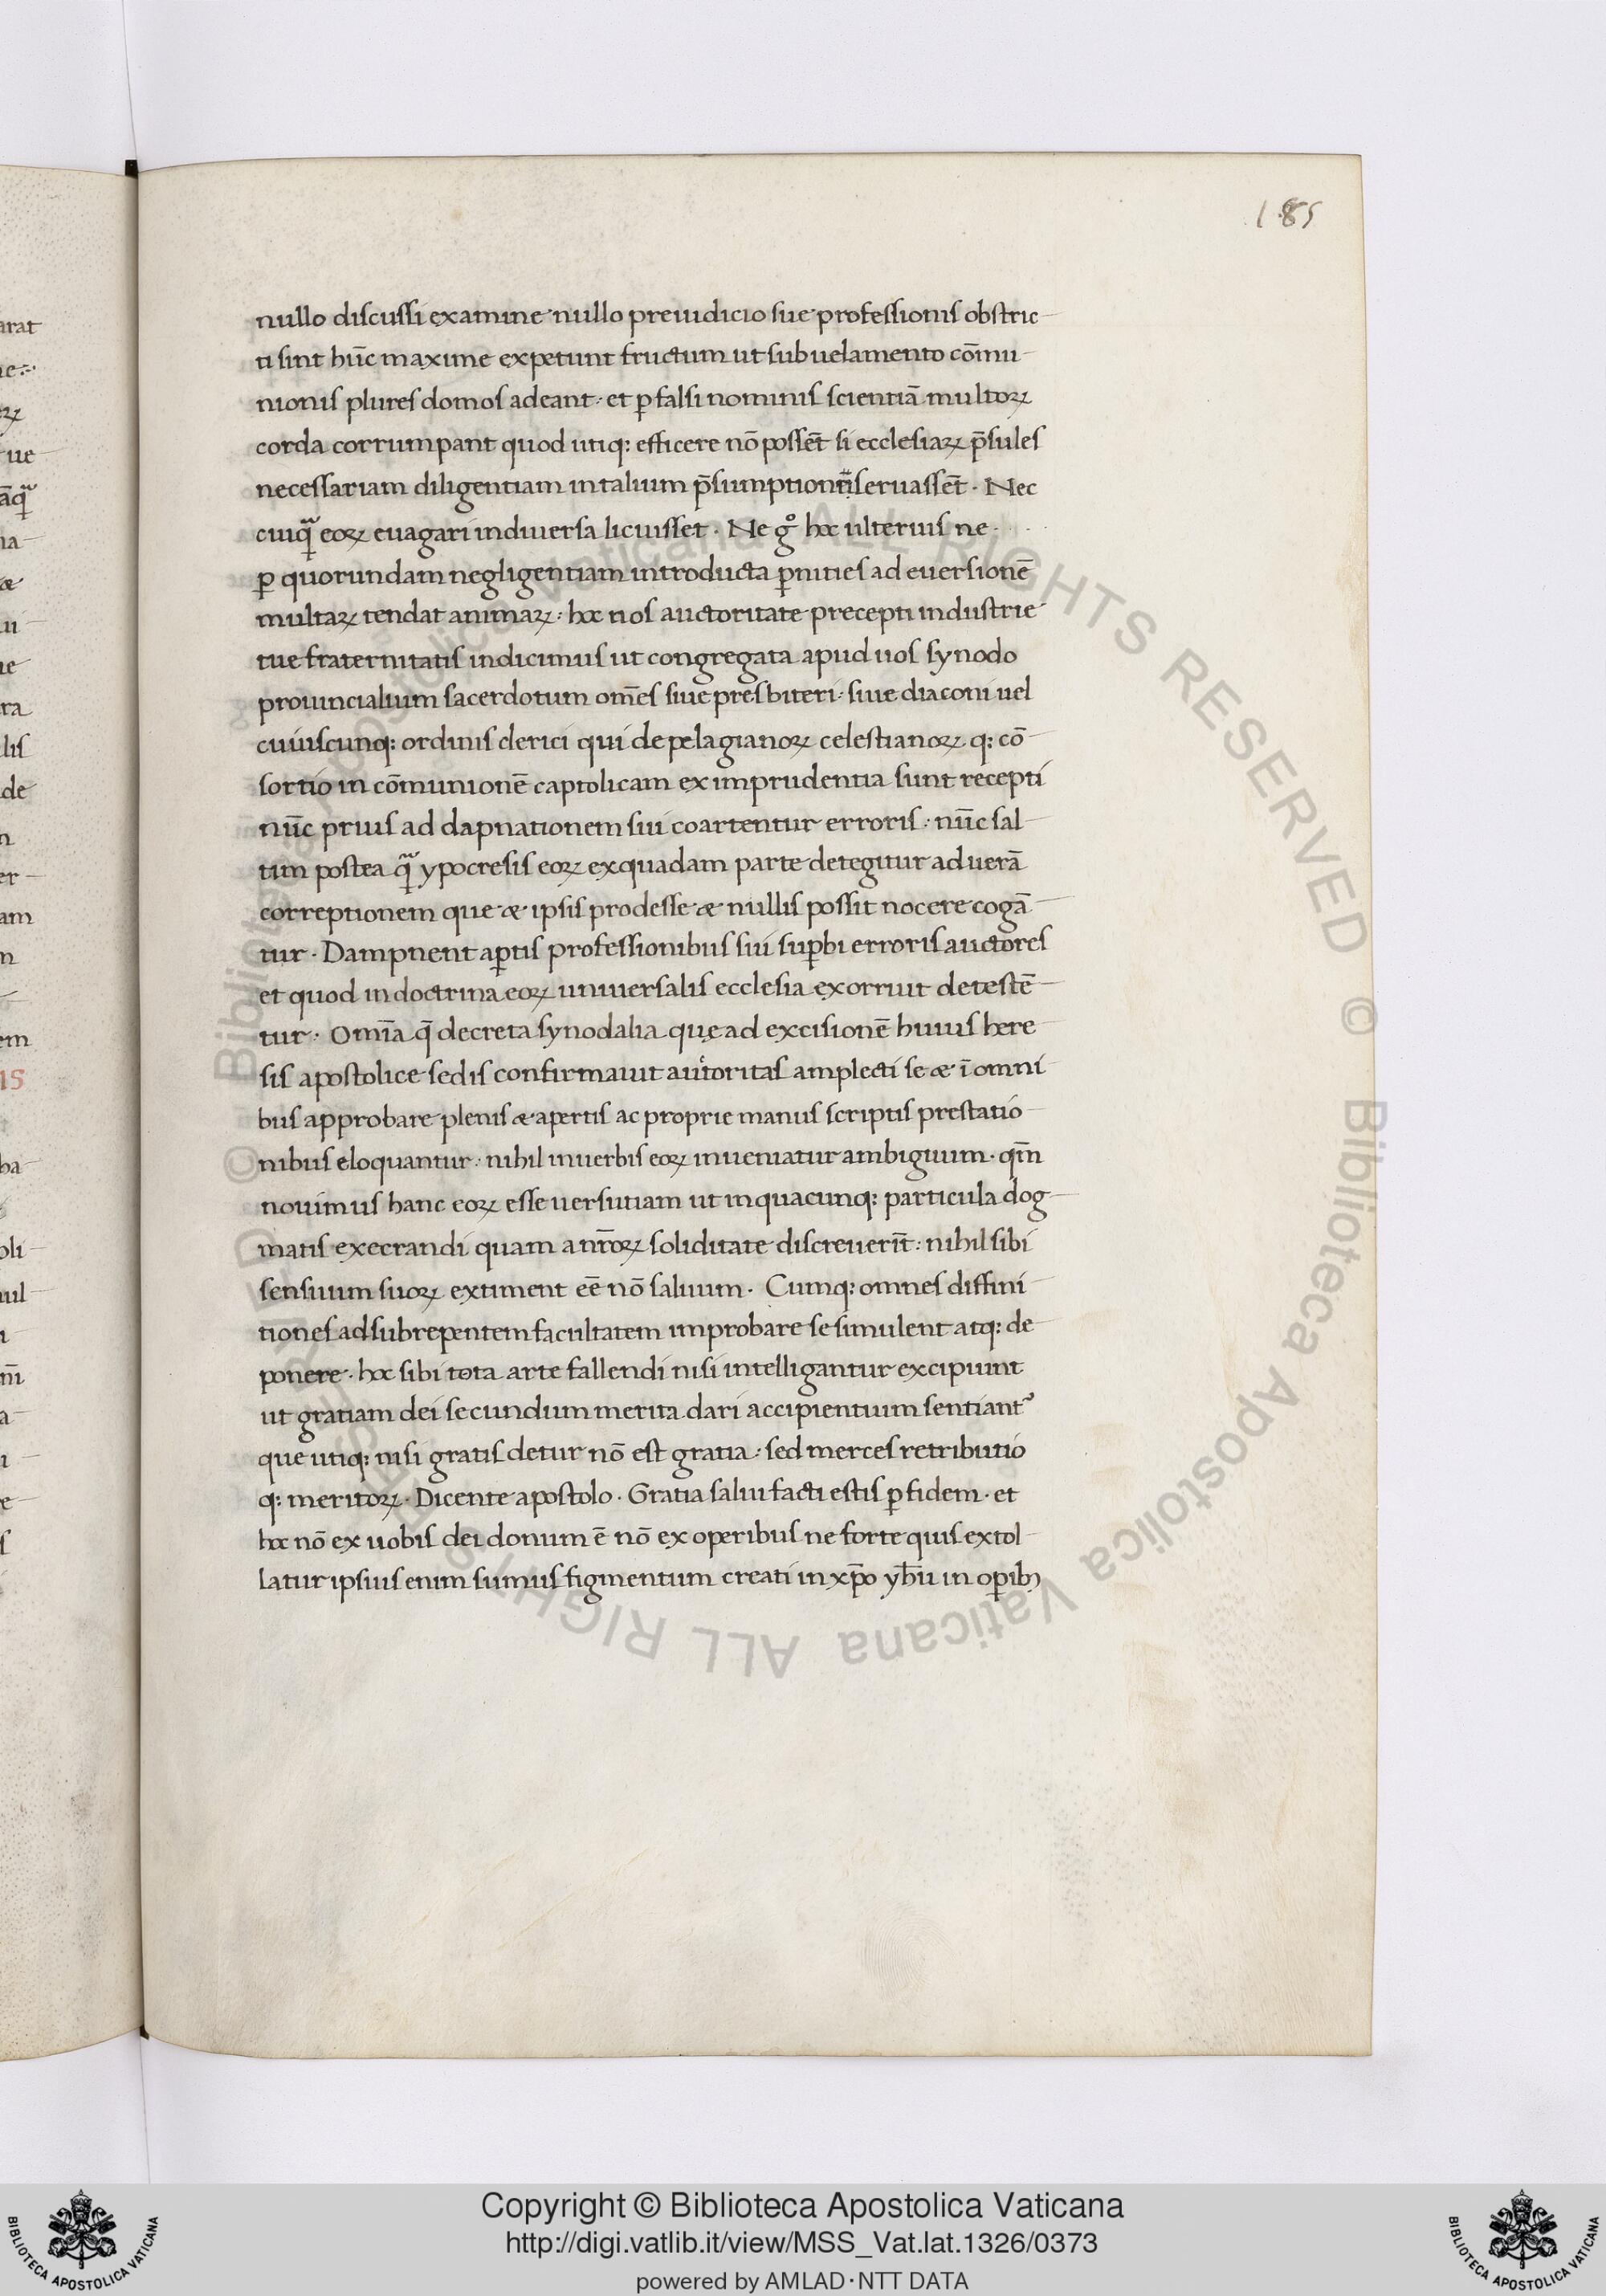 185
nullo discussi examine nullo preiudicio sue professionis obstric
ti sint hūc maxime expetunt fructum ut sub uelamento cōmu
nionis plures domos adeant · et ꝑ falsi nominis scientiā multoꝝ
corda corrumpant quod utiq: efficere nō possēt si ecclesiaꝝ p̄sules
necessariam diligentiam in talium p̄sumption seruassēt · Nec
cuiqᷓ eoꝝ euagari in diuersa licuisset · Ne gͦ hoc ulterius ne
ꝑ quorundam negligentiam introducta ꝑnities ad euersionē
multaꝝ tendat animaꝝ : hoc nos auctoritate precepti industrie
tue fraternitatis indicimus ut congregata apud uos synodo
prouincialium sacerdotum om̄es siue presbiteri · siue diaconi uel
cuiuscunq: ordinis clerici qui de pelagianoꝝ celestianoꝝ q: cō
sortio in cōmunionē captolicam ex imprudentia sunt recepti
nūc prius ad dapnationem sui coartentur erroris : nūc sal
tim postea qᷓ ypocresis eoꝝ ex quadam parte detegitur ad uerā
correptionem que & ipsis prodesse & nullis possit nocere cogā
tur · Dampnent aꝑtis professionibus sui suꝑbi erroris auctores
et quod in doctrina eoꝝ uniuersalis ecclesia exorruit detestē
tur · Om̄ia q̄ decreta synodalia quę ad excisionē huius here
sis apostolice sedis confirmauit autoritas amplecti se & ī omni
bus approbare plenis & apertis ac proprie manus scriptis prestatio
nibus eloquantur : nihil in uerbis eoꝝ inueniatur ambiguum · qm̄
nouimus hanc eoꝝ esse uersutiam ut in quacunq: particula dog
matis execrandi quam a nr̄oꝝ soliditate discreuerīt : nihil sibi
sensuum suoꝝ extiment eē nō saluum · Cumq: omnes diffini
tiones ad subrepentem facultatem improbare se simulent atq: de
ponere · hoc sibi tota arte fallendi nisi intelligantur excipiunt
ut gratiam dei secundum merita dari accipientium sentiant᷑
que utiq: nisi gratis detur nō est gratia : sed merces retributio
q: meritoꝝ · Dicente apostolo · Gratia salui facti estis ꝑ fidem · et
hoc nō ex uobis dei donum ē nō ex operibus ne forte quis extol
latur ipsius enim sumus figmentum creati in xp̄o yh̄u in oꝑibꝫ
© Biblioteca Apostolica Vaticana ALL RIGHTS RESERVED
© Biblioteca Apostolica Vaticana ALL RIGHTS RESERVED
BIBLIOTECA APOSTOLICA VATICANA
Copyright © Biblioteca Apostolica Vaticana
http://digi.vatlib.it/view/MSS_Vat.lat.1326/0373
powered by AMLAD·NTT DATA
BIBLIOTECA APOSTOLICA VATICANA